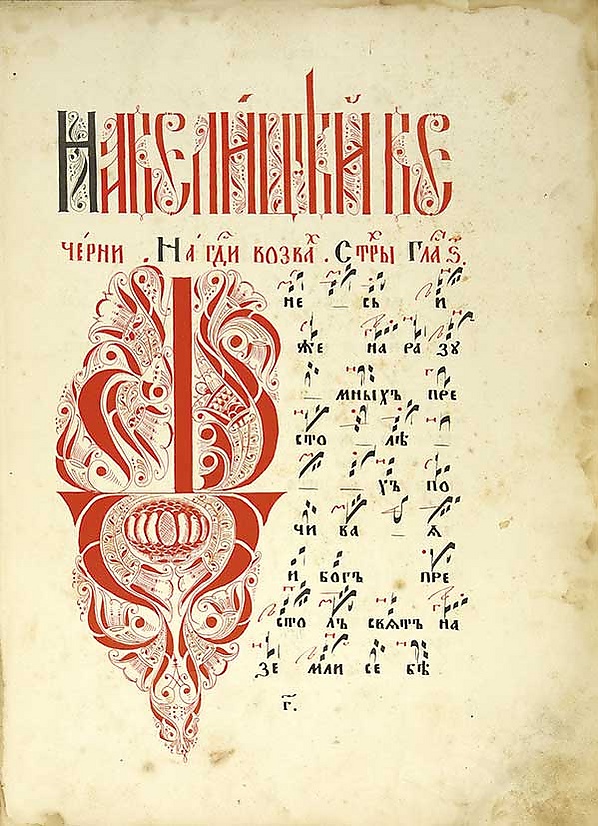 Навели́цѣй ве
че́рни . На́ гд҇и возва҇х . Стх҇ры Гла҇ ѕ҃.
Д
не – сь и
же на ра зу
– мныхъ пре
сто – лѣ –
– – хъ по
чи ва – я
и богъ пре
сто лъ святъ на
зе мли се бѣ
г҃.